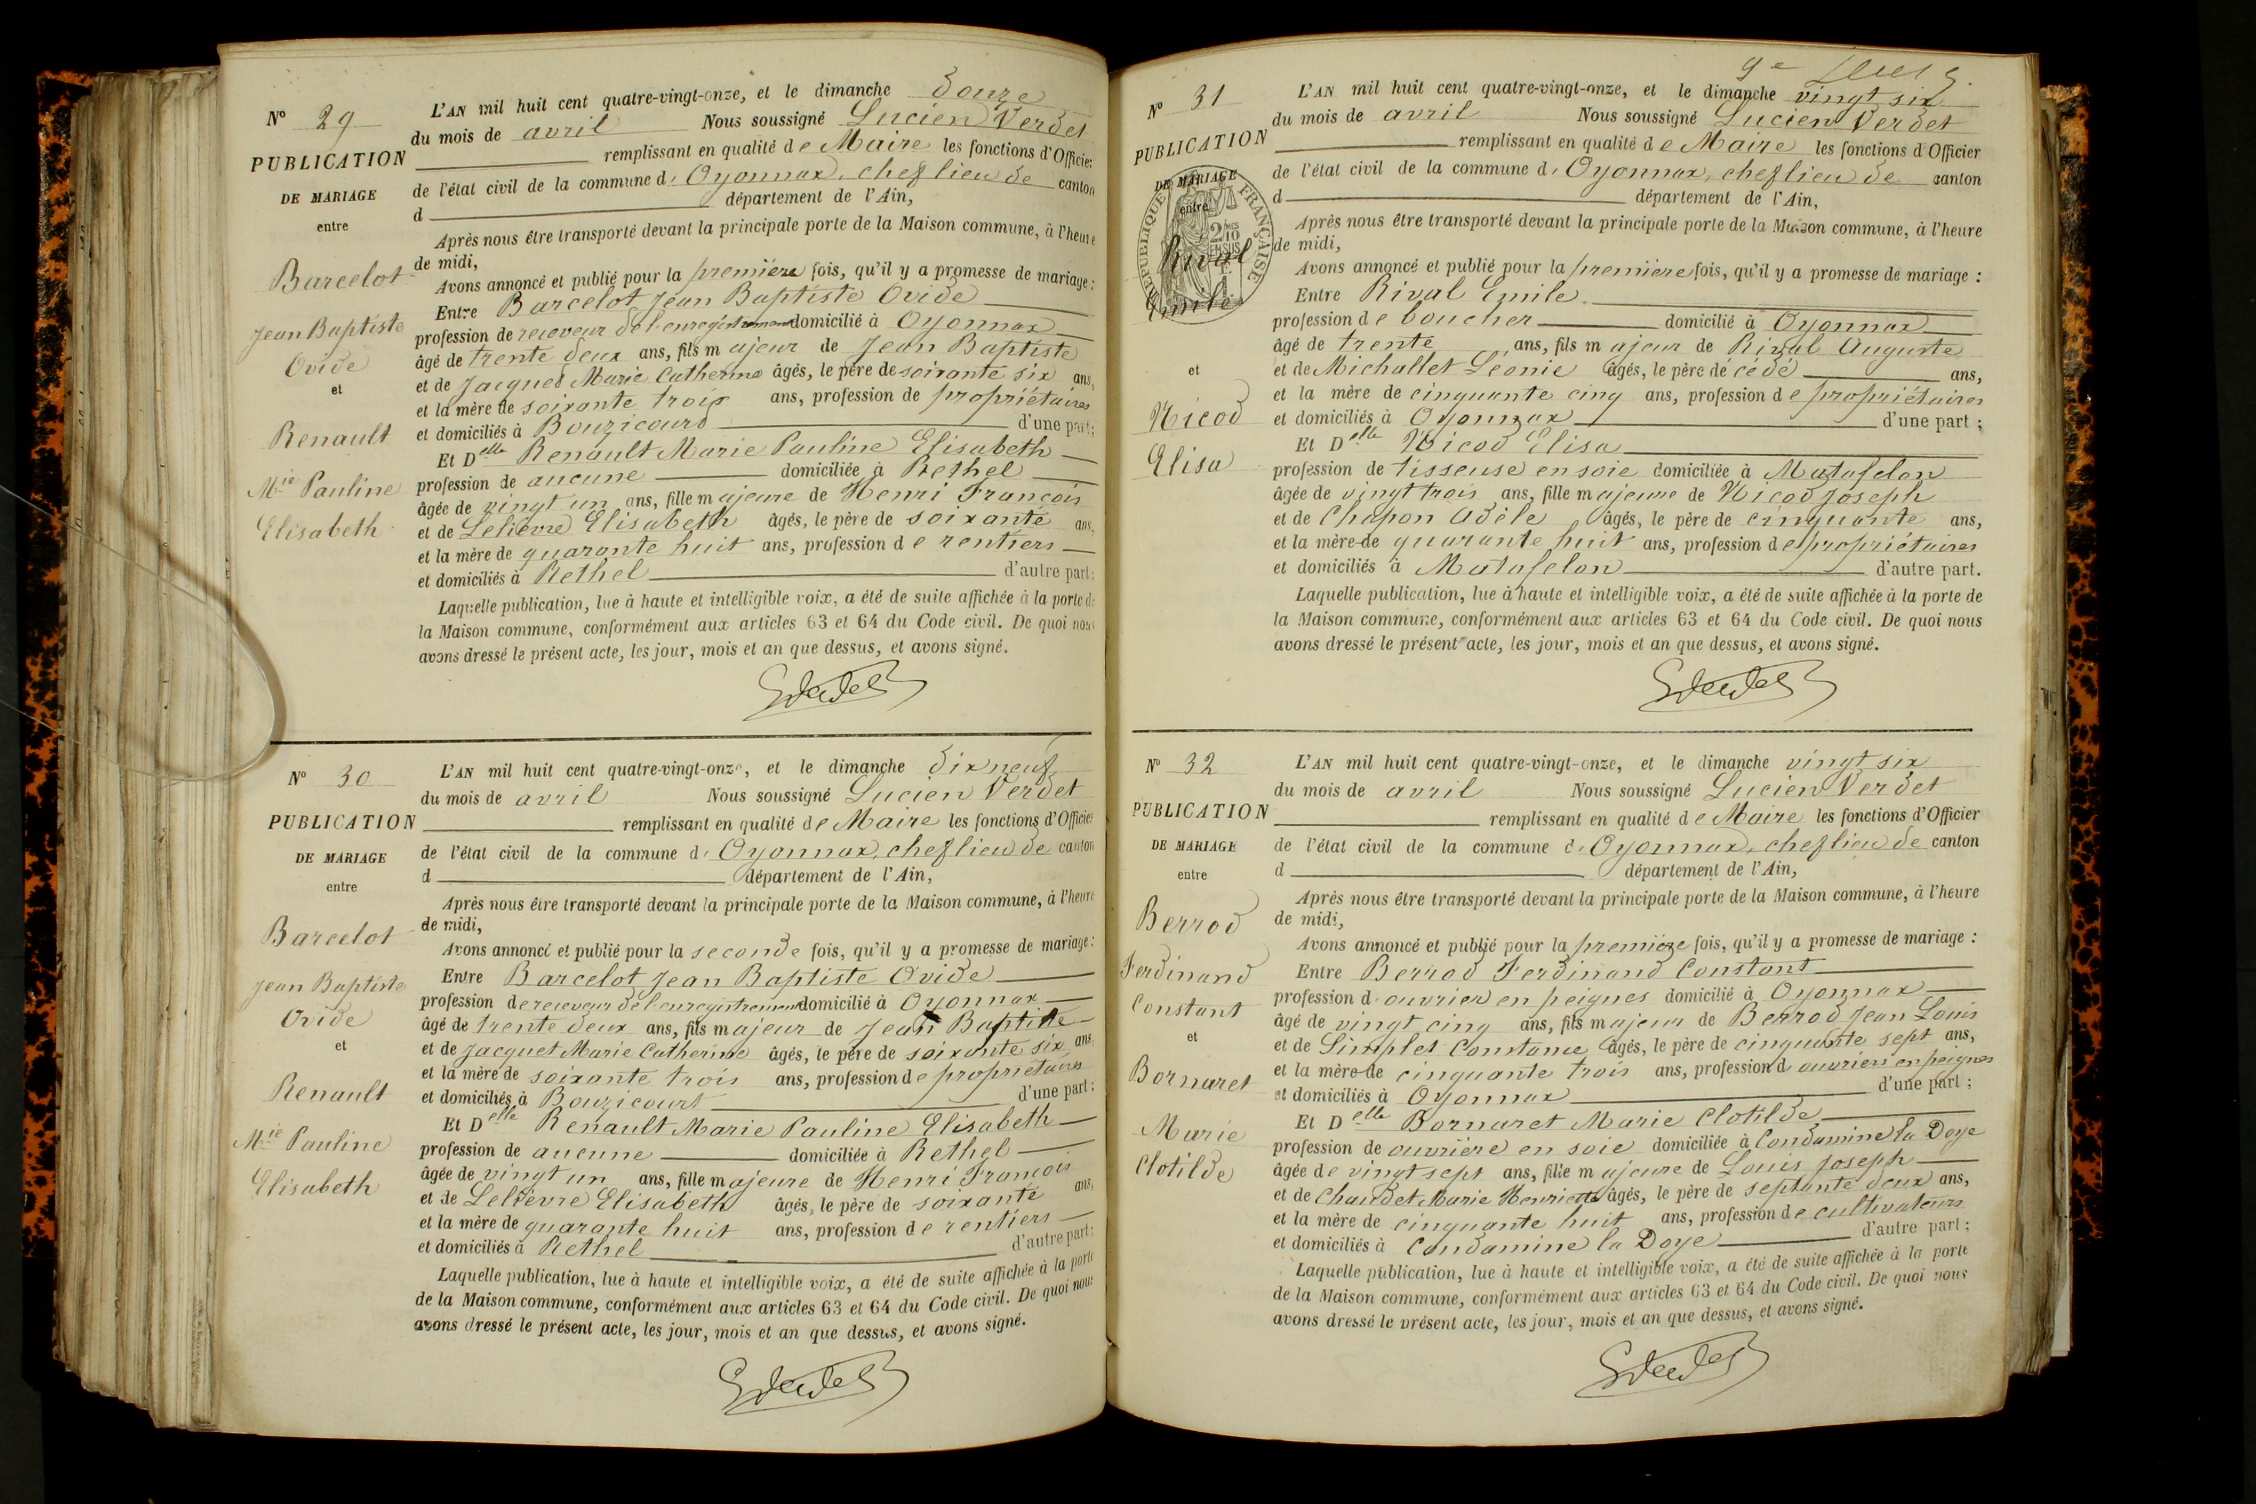 Nº 29
PUBLICATION
DE MARIAGE
entre
Barcelot
Jean Baptiste
Ovide
et
Renault
Mie Pauline
Elisabeth
L'AN mil huit cent quatre-vingt-onze, et le dimanche douze
du mois de avril Nous soussigné Lucien Verdet
remplissant en qualité de Maire les fonctions d'Officier
de l'état civil de la commune d'Oyonnax, chef lieu de canton
d département de l'Ain,
Après nous être transporté devant la principale porte de la Maison commune, à l'heure
de midi,
Avons annoncé et publié pour la première fois, qu'il y a promesse de mariage :
Entre Barcelot Jean Baptiste Ovide
profession de receveur de l'enregistrement domicilié à Oyonnax
âgé de trente deux ans, fils majeur de Jean Baptiste
et de Jacquet Marie Catherine âgés, le père de soixante six ans,
et la mère de soixante trois ans, profession de propriétaires
et domiciliés à Bouzicourt d'une part ;
Et Delle Renault Marie Pauline Elisabeth
profession de aucune domiciliée à Rethel
âgée de vingt un ans, fille majeure de Henri François
et de Lelièvre Elisabeth âgés, le père de soixante ans,
et la mère de quarante huit ans, profession de rentiers
et domiciliés à Rethel d'autre part :
Laquelle publication, lue à haute et intelligible voix, a été de suite affichée à la porte de
la Maison commune, conformément aux articles 63 et 64 du Code civil. De quoi nous
avons dressé le présent acte, les jour, mois et an que dessus, et avons signé.
Nº 30
PUBLICATION
DE MARIAGE
entre
Barcelot
Jean Baptiste
Ovide
et
Renault
Mie Pauline
Elisabeth
L'AN mil huit cent quatre-vingt-onze, et le dimanche dix neuf
du mois de avril Nous soussigné Lucien Verdet
remplissant en qualité de Maire les fonctions d'Officier
de l'état civil de la commune d'Oyonnax, chef lieu de canton
d département de l'Ain,
Après nous être transporté devant la principale porte de la Maison commune, à l'heure
de midi,
Avons annoncé et publié pour la seconde fois, qu'il y a promesse de mariage :
Entre Barcelot Jean Baptiste Ovide
profession de receveur de l'enregistrement domicilié à Oyonnax
âgé de trente deux ans, fils majeur de Jean Baptiste
et de Jacquet Marie Catherine âgés, le père de soixante six ans,
et la mère de soixante trois ans, profession de propriétaires
et domiciliés à Bouzicourt d'une part ;
Et Delle Renault Marie Pauline Elisabeth
profession de aucune domiciliée à Rethel
âgée de vingt un ans, fille majeure de Henri François
et de Lelièvre Elisabeth âgés, le père de soixante ans,
et la mère de quarante huit ans, profession de rentiers
et domiciliés à Rethel d'autre part :
Laquelle publication, lue à haute et intelligible voix, a été de suite affichée à la porte
de la Maison commune, conformément aux articles 63 et 64 du Code civil. De quoi nous
avons dressé le présent acte, les jour, mois et an que dessus, et avons signé.
Nº 31
PUBLICATION
DE MARIAGE
entre
RÉPUBLIQUE FRANÇAISE
Rival
Emile
et
Nicod
Elisa
L'AN mil huit cent quatre-vingt-onze, et le dimanche vingt six
du mois de avril Nous soussigné Lucien Verdet
remplissant en qualité de Maire les fonctions d'Officier
de l'état civil de la commune d'Oyonnax, chef lieu de canton
d département de l'Ain,
Après nous être transporté devant la principale porte de la Maison commune, à l'heure
de midi,
Avons annoncé et publié pour la première fois, qu'il y a promesse de mariage :
Entre Rival Emile
profession de boucher domicilié à Oyonnax
âgé de trente ans, fils majeur de Rival Auguste
et de Michallet Léonie âgés, le père décédé ans,
et la mère de cinquante cinq ans, profession de propriétaires
et domiciliés à Oyonnax d'une part ;
Et Delle Nicod Elisa
profession de tisseuse en soie domiciliée à Matafelon
âgée de vingt trois ans, fille majeure de Nicod Joseph
et de Chapon Adèle âgés, le père de cinquante ans,
et la mère de quarante huit ans, profession de propriétaires
et domiciliés à Matafelon d'autre part.
Laquelle publication, lue à haute et intelligible voix, a été de suite affichée à la porte de
la Maison commune, conformément aux articles 63 et 64 du Code civil. De quoi nous
avons dressé le présent acte, les jour, mois et an que dessus, et avons signé.
Nº 32
PUBLICATION
DE MARIAGE
entre
Berrod
Ferdinand
Constant
et
Bornaret
Marie
Clotilde
L'AN mil huit cent quatre-vingt-onze, et le dimanche vingt six
du mois de avril Nous soussigné Lucien Verdet
remplissant en qualité de Maire les fonctions d'Officier
de l'état civil de la commune d'Oyonnax, chef lieu de canton
d département de l'Ain,
Après nous être transporté devant la principale porte de la Maison commune, à l'heure
de midi,
Avons annoncé et publié pour la première fois, qu'il y a promesse de mariage :
Entre Berrod Ferdinand Constant
profession d'ouvrier en peignes domicilié à Oyonnax
âgé de vingt cinq ans, fils majeur de Berrod Jean Louis
et de Simplet Constance âgés, le père de cinquante sept ans,
et la mère de cinquante trois ans, profession d'ouvriers en peignes
et domiciliés à Oyonnax d'une part ;
Et Delle Bornaret Marie Clotilde
profession de ouvrière en soie domiciliée à Condamine la Doye
âgée de vingt sept ans, fille majeure de Louis Joseph
et de Chaudet Marie Henriette âgés, le père de septante deux ans,
et la mère de cinquante huit ans, profession de cultivateurs
et domiciliés à Condamine la Doye d'autre part ;
Laquelle publication, lue à haute et intelligible voix, a été de suite affichée à la porte
de la Maison commune, conformément aux articles 63 et 64 du Code civil. De quoi nous
avons dressé le présent acte, les jour, mois et an que dessus, et avons signé.